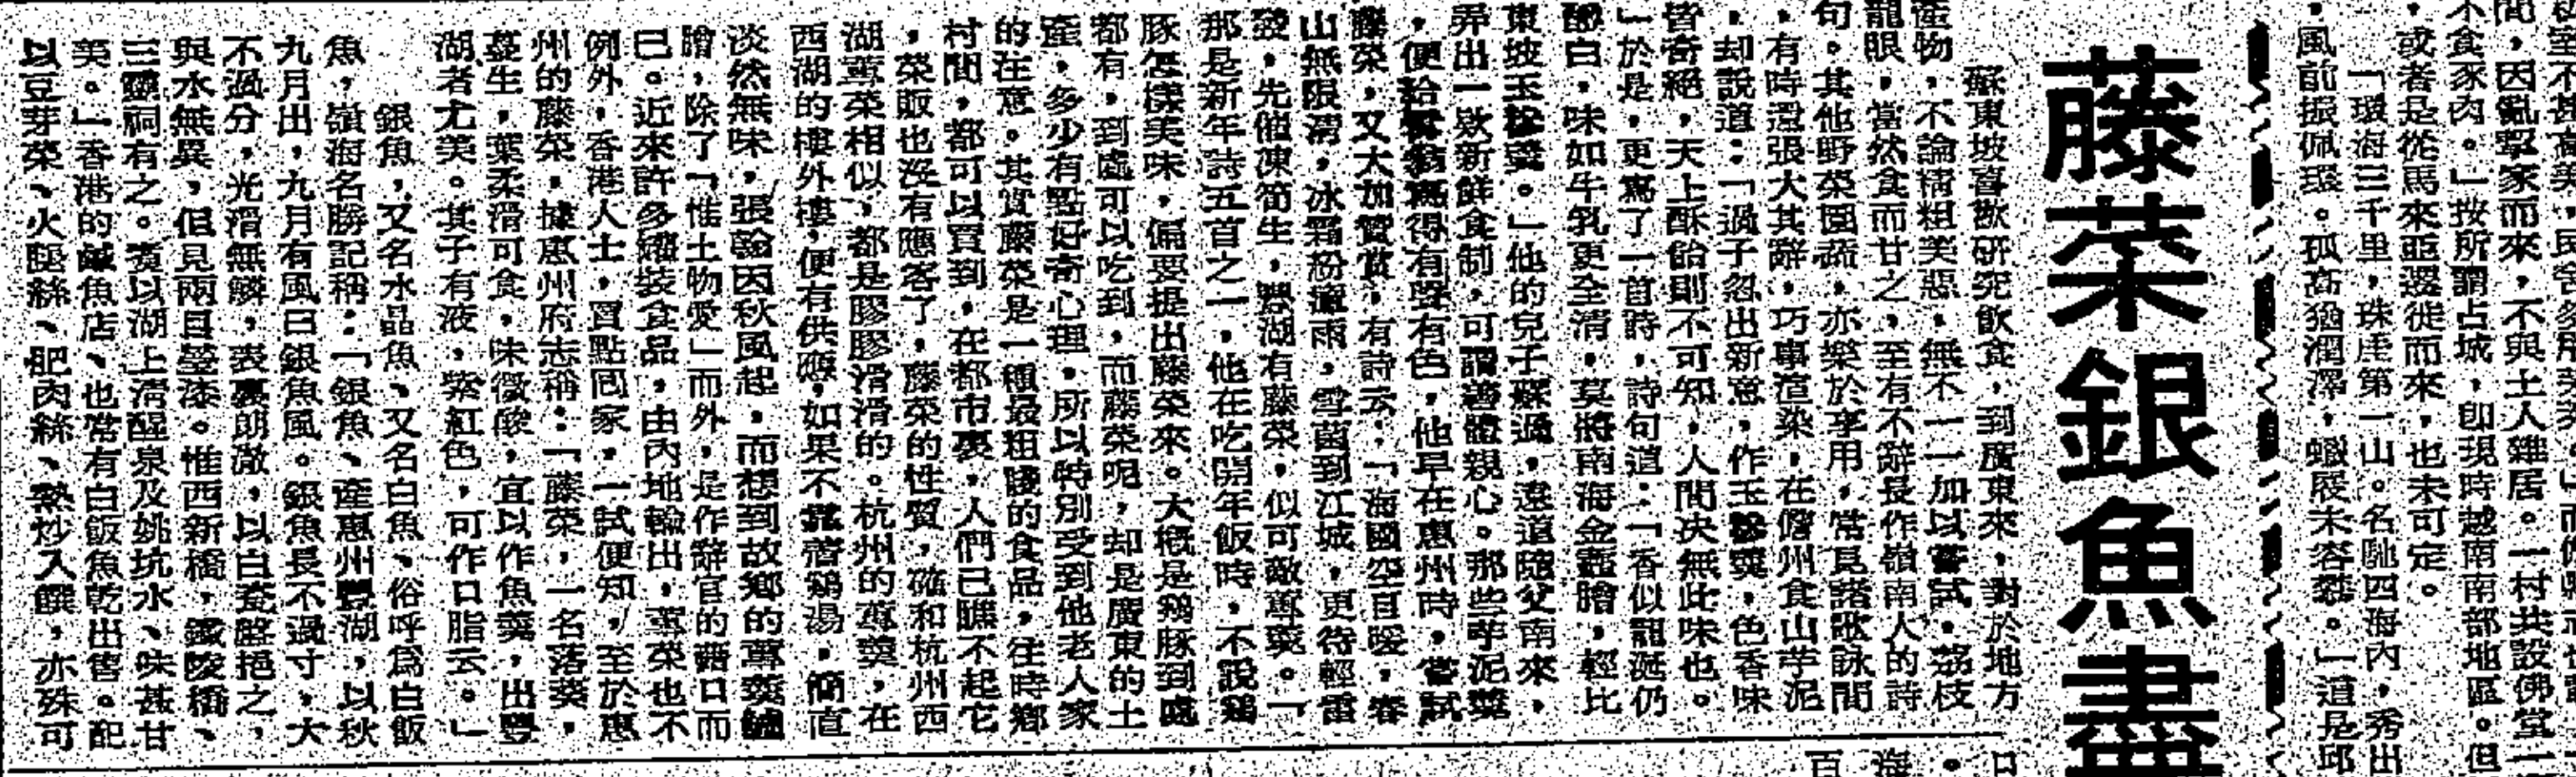 間，因亂挈家而來，不與土人雜居。一村共設佛堂一
不食豕肉。」按所謂占城，卽現時越南南部地區。但
，或者是從馬來亞遷徙而來，也未可定。
「環海三千里，珠崖第一山。名馳四海內，秀出
，風前振佩環。孤高猶潤澤，蠟屐未容攀。」道是邱
藤菜銀魚盡
蘇東坡喜歡研究飲食，到廣東來，對於地方
產物，不論精粗美惡，無不一一加以嘗試，荔枝
龍眼，當然食而甘之，至有不辭長作嶺南人的詩
句。其他野菜園蔬，亦樂於享用，常見諸歌詠間
，有時還張大其辭，巧事渲染，在儋州食山芋泥
，却說道：「過子忽出新意，作玉糝羹，色香味
皆奇絕，天上酥飴則不可知，人間决無此味也。
」於是，更寫了一首詩，詩句道：「香似龍涎仍
釅白，味如牛乳更全清，莫將南海金虀膾，輕比
東坡玉糝羹。」他的兒子蘇過，遠道隨父南來，
弄出一欵新鮮食制，可謂善體親心。那些芋泥羹
，便給稱得有聲有色，他早在惠州時，嘗試
藤菜，又大加贊賞，有詩云：「海國空自暖，春
山無限清，冰霜紛瘴雨，雪菌到江城，更待輕雷
發，先催凍筍生，豐湖有藤菜，似可敵蓴羹。「
那是新年詩五首之一，他在吃開年飯時，不說鷄
豚怎樣美味，偏要提出藤菜來。大概是鷄豚到處
都有，到處可以吃到，而藤菜呢，却是廣東的土
產，多少有點好奇心理，所以特別受到他老人家
的注意。其實藤菜是一種最粗賤的食品，往時鄉
村間，都可以買到，在都市裏，人們已瞧不起它
，菜販也沒有應客了，藤菜的性質，確和杭州西
湖蓴菜相似，都是膠膠滑滑的。杭州的蓴羹，在
西湖的樓外樓，便有供應，如果不靠着鷄湯，簡直
淡然無味，張翰因秋風起，而想到故鄉的蓴羹鱸
膾，除了「惟土物愛」而外，是作辭官的藉口而
已。近來許多罐裝食品，由內地輸出，蓴菜也不
例外，香港人士，買點囘家，一試便知，至於惠
州的藤菜，據惠州府志稱：「藤菜，一名落葵，
蔓生，葉柔滑可食，味微酸，宜以作魚羹，出豐
湖者尤美。其子有液，紫紅色，可作口脂云。」
銀魚，又名水晶魚、又名白魚、俗呼爲白飯
魚，嶺海名勝記稱：「銀魚、產惠州豐湖，以秋
九月出，九月有風曰銀魚風。銀魚長不過寸，大
不過分，光滑無鱗，表裏朗澈，以白瓷盤挹之，
與水無異，但見兩目瑩漆。惟西新橋，鐵陂橋、
三靈祠有之。賓以湖上清醒泉及姚坑水、味甚甘
美。」香港的鹹魚店、也常有白飯魚乾出售。配
以豆芽菜、火腿絲、肥肉絲、熱炒入饌，亦殊可